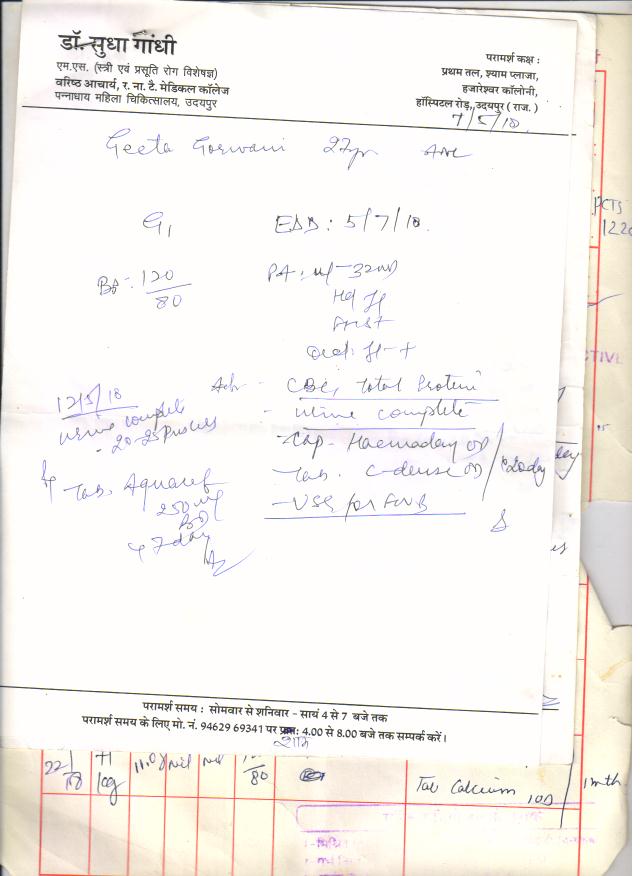 डॉ. सुधा गांधी
एम.एस. (स्त्री एवं प्रसूति रोग विशेषज्ञ)
वरिष्ठ आचार्य, र. ना. टै. मेडिकल कॉलेज
पन्नाधाय महिला चिकित्सालय, उदयपुर
परामर्श कक्ष :
प्रथम तल, श्याम प्लाजा,
हजारेश्वर कॉलोनी,
हॉस्पिटल रोड़, उदयपुर ( राज. )
7/5/18
Geeta Gorwani 27yr ANC
G1 EDD: 5/7/18
BP: 120/80
PA: ut-32wk
CBC, Total Protein
- Urine complete
- Cap. Haemaday OD
Tab. C-dense OD
- USG for FWB
x 20 day
12/5/18
Urine complete
- 20-25 Puscells
Tab. Aquacef
250 mg
BD
x 7 day
PCTS
122
परामर्श समय : सोमवार से शनिवार - सायं 4 से 7 बजे तक
परामर्श समय के लिए मो. नं. 94629 69341 पर प्रातः 4.00 से 8.00 बजे तक सम्पर्क करें।
शाम
22/ 11.0 Nil Nil /80 Tab Calcium 1OD 1mth